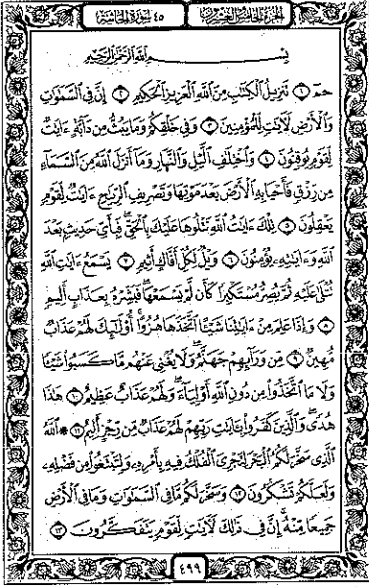 الجزء الخامس والعشرون ٤٥ سورة الجاثية
بِسْمِ ٱللَّهِ ٱلرَّحْمَٰنِ ٱلرَّحِيمِ
حمٓ ١ تَنزِيلُ ٱلْكِتَٰبِ مِنَ ٱللَّهِ ٱلْعَزِيزِ ٱلْحَكِيمِ ٢ إِنَّ فِى ٱلسَّمَٰوَٰتِ
وَٱلْأَرْضِ لَءَايَٰتٍ لِّلْمُؤْمِنِينَ ٣ وَفِى خَلْقِكُمْ وَمَا يَبُثُّ مِن دَآبَّةٍ ءَايَٰتٌ
لِّقَوْمٍ يُوقِنُونَ ٤ وَٱخْتِلَٰفِ ٱلَّيْلِ وَٱلنَّهَارِ وَمَآ أَنزَلَ ٱللَّهُ مِنَ ٱلسَّمَآءِ
مِن رِّزْقٍ فَأَحْيَا بِهِ ٱلْأَرْضَ بَعْدَ مَوْتِهَا وَتَصْرِيفِ ٱلرِّيَٰحِ ءَايَٰتٌ لِّقَوْمٍ
يَعْقِلُونَ ٥ تِلْكَ ءَايَٰتُ ٱللَّهِ نَتْلُوهَا عَلَيْكَ بِٱلْحَقِّ فَبِأَىِّ حَدِيثٍۭ بَعْدَ
ٱللَّهِ وَءَايَٰتِهِۦ يُؤْمِنُونَ ٦ وَيْلٌ لِّكُلِّ أَفَّاكٍ أَثِيمٍ ٧ يَسْمَعُ ءَايَٰتِ ٱللَّهِ
تُتْلَىٰ عَلَيْهِ ثُمَّ يُصِرُّ مُسْتَكْبِرًا كَأَن لَّمْ يَسْمَعْهَا فَبَشِّرْهُ بِعَذَابٍ أَلِيمٍ
٨ وَإِذَا عَلِمَ مِنْ ءَايَٰتِنَا شَيْـًٔا ٱتَّخَذَهَا هُزُوًا أُو۟لَٰٓئِكَ لَهُمْ عَذَابٌ
مُّهِينٌ ٩ مِّن وَرَآئِهِمْ جَهَنَّمُ وَلَا يُغْنِى عَنْهُم مَّا كَسَبُوا۟ شَيْـًٔا
وَلَا مَا ٱتَّخَذُوا۟ مِن دُونِ ٱللَّهِ أَوْلِيَآءَ وَلَهُمْ عَذَابٌ عَظِيمٌ ١٠ هَٰذَا
هُدًى وَٱلَّذِينَ كَفَرُوا۟ بِـَٔايَٰتِ رَبِّهِمْ لَهُمْ عَذَابٌ مِّن رِّجْزٍ أَلِيمٌ ١١ ۞ ٱللَّهُ
ٱلَّذِى سَخَّرَ لَكُمُ ٱلْبَحْرَ لِتَجْرِىَ ٱلْفُلْكُ فِيهِ بِأَمْرِهِۦ وَلِتَبْتَغُوا۟ مِن فَضْلِهِۦ
وَلَعَلَّكُمْ تَشْكُرُونَ ١٢ وَسَخَّرَ لَكُم مَّا فِى ٱلسَّمَٰوَٰتِ وَمَا فِى ٱلْأَرْضِ
جَمِيعًا مِّنْهُ إِنَّ فِى ذَٰلِكَ لَءَايَٰتٍ لِّقَوْمٍ يَتَفَكَّرُونَ ١٣
٤٩٩